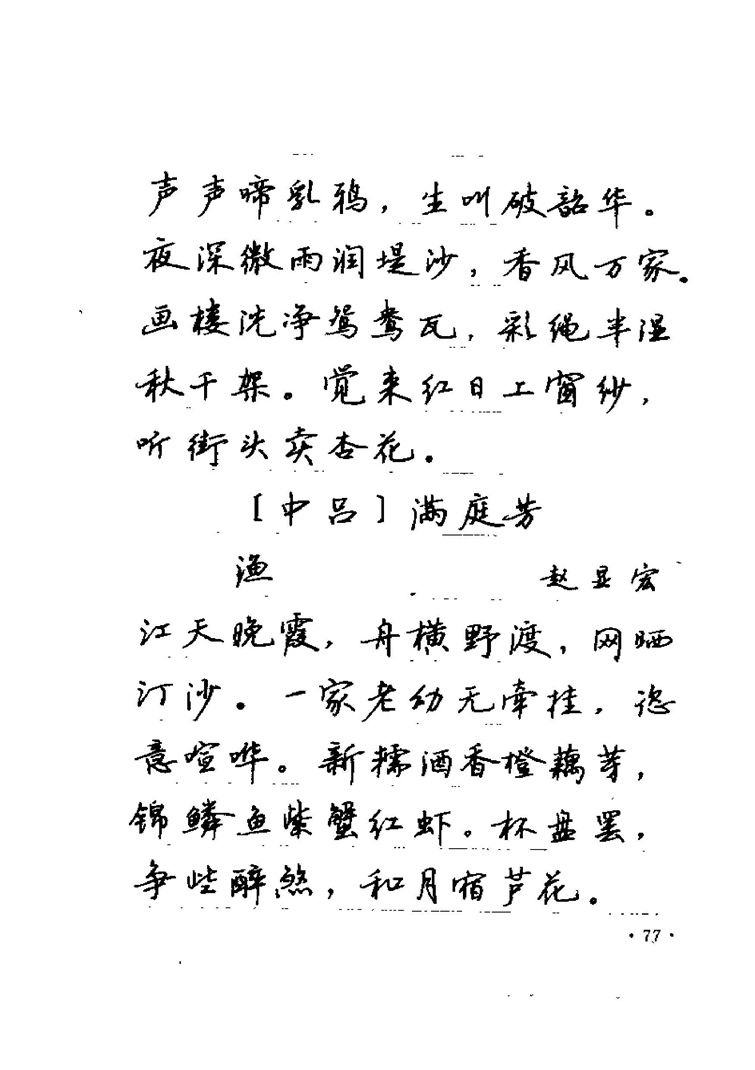 声声啼乳鸦，生叫破韶华。
夜深微雨润堤沙，香风万家。
画楼洗净鸳鸯瓦，彩绳半湿
秋千架。觉来红日上窗纱，
听街头卖杏花。
［中吕］满庭芳
渔 赵显宏
江天晚霞，舟横野渡，网晒
汀沙。一家老幼无牵挂，恣
意喧哗。新糯酒香橙藕芽，
锦鳞鱼紫蟹红虾。杯盘罢，
争些醉煞，和月宿芦花。
·77·